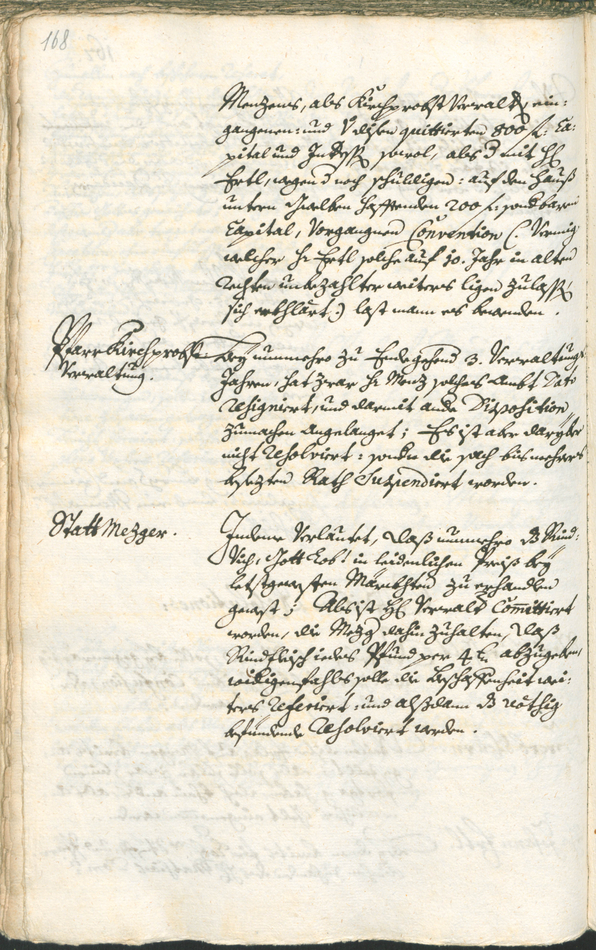 168
Menzens, als Kirchprobst Verwalters, ein-
gangenen: und V quittierten 800 f. Ca-
pital und Interesse sowol, als mit H:
Ertl, wegen noch schuldigen: auf dem Hauß
untern Gwelben hafftenden 200 f:
Capital, Vorgangnen Convention (: Vermög
welcher H: Ertl solche auf 10. Jahr in alten
rechten unbezahlter weiters ligen zulassen
sich erkhlärt:) last mann es bewenden.
PfarrKirchprobsten
Verwaltung.
Bey nunmehro zu Ende gehend 3. Verwaltungs
Jahren, hat zwar H: Menz solches Ambt
resigniert, und darmit ande Disposition
zumachen angelanget; Es ist aber daryber
nicht resolviert: sondern die sach bis mehrers
besezten Rath suspendiert worden.
StattMezger.
Indeme Verlautet, daß nunmehro das Rind-
Vich, Gott Lob! in leidenlichen Preiß bey
letstgewesten Märckhten zu erhandlen
gewest; Als ist H: Verwalter Comittiert
worden, die Mezger dahin zuhalten, daß
Rindfleisch iedes Pfund per 4 k. abzugeben,
widrigenfahls solle die beschaffenheit wei-
ters referiert: und alßdann das nöthig
befindende resolviert werden.